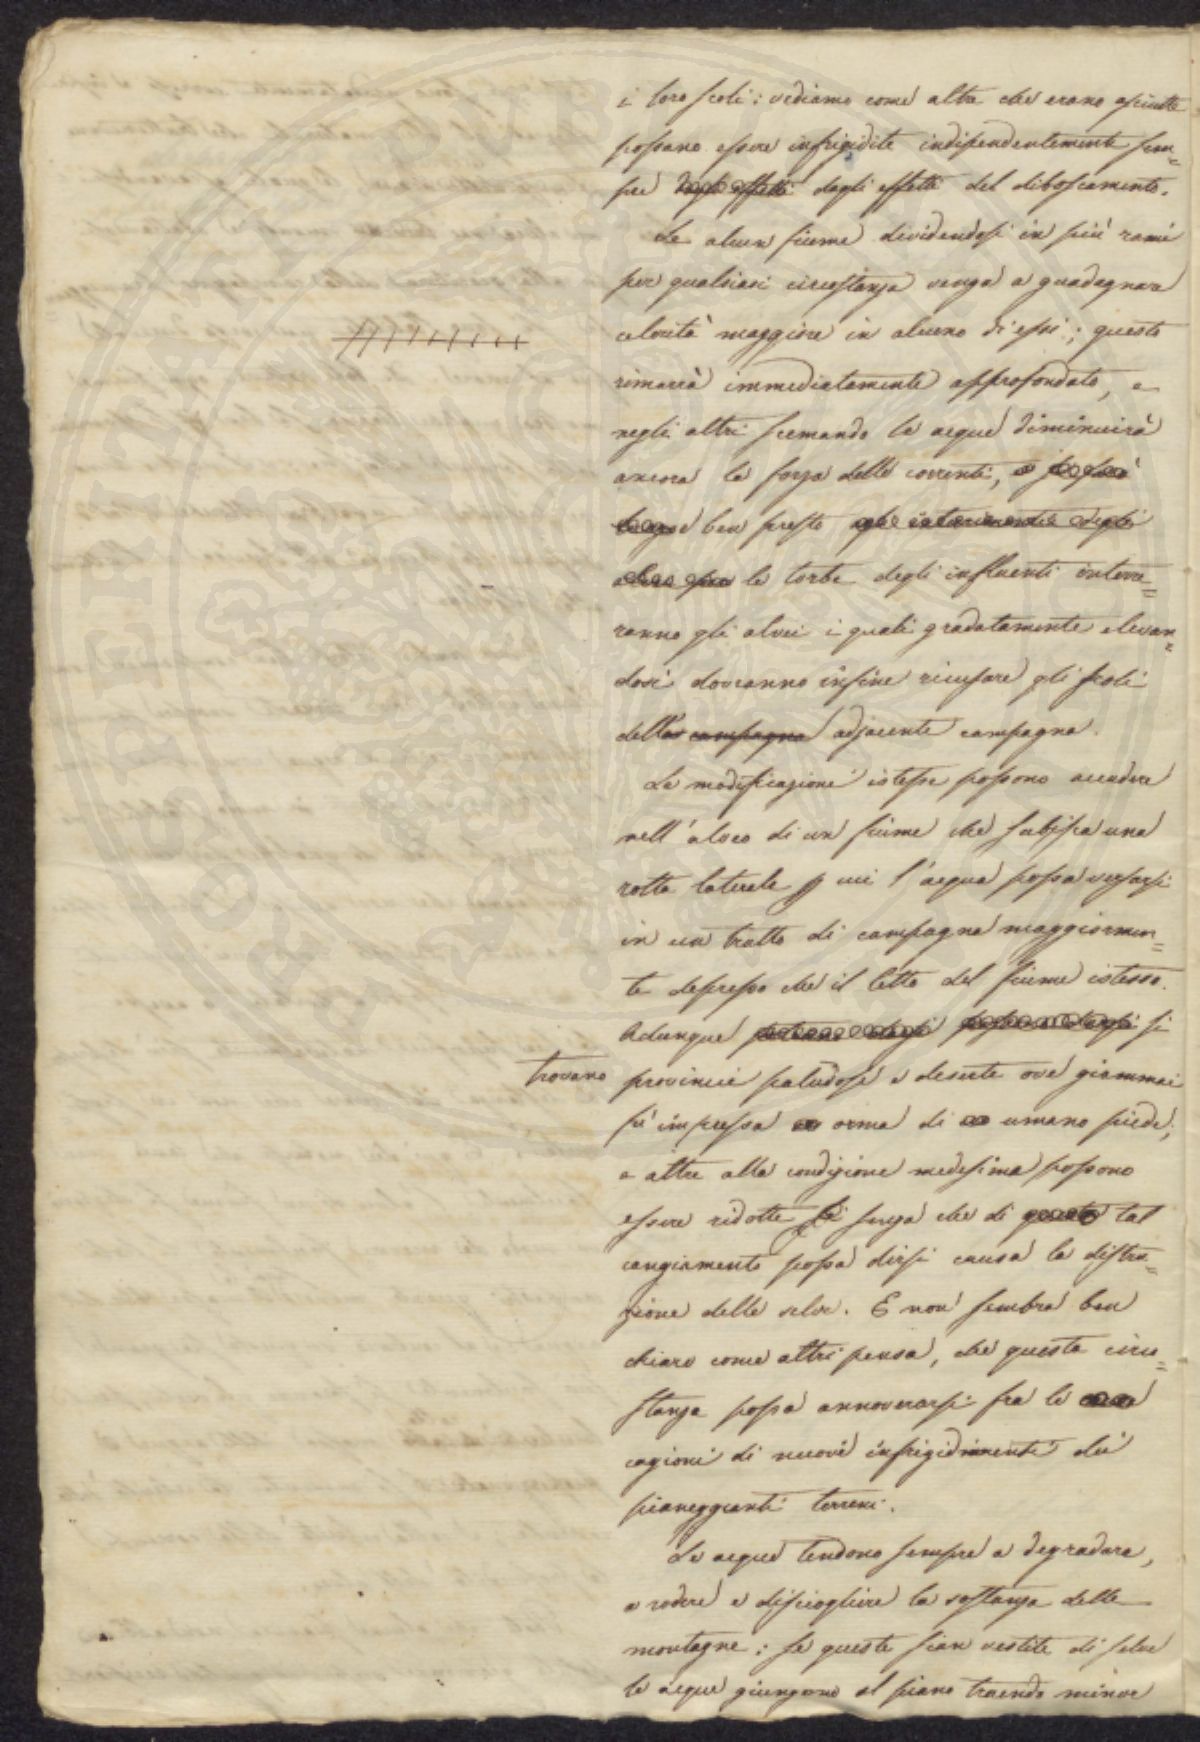 i loro scoli: vediamo come altre che erano asciutte
possano essere infrigidite indipendentemente sem=
pre degli effetti degli effetti del diboscamento.
Se alcun fiume dividendosi in più rami
per qualsiasi circostanza venga a guadagnare
celerità maggiore in alcuno di essi; questo
rimarrà immediatamente approfondato, e
negli altri scemando le acque diminuirà
ancora la forza delle correnti, e
ben presto
le torbe degli influenti interre=
ranno gli alvei i quali gradatamente elevan=
dosi dovranno infine ricusare gli scoli
della campagna adjacente campagna.
Le modificazioni istesse possono accadere
nell'alveo di un fiume che subisca una
rotta laterale p cui l'acqua possa versarsi
in un tratto di campagna maggiormen=
te depresso che il letto del fiume istesso.
Adunque si
trovano provincie paludose e deserte ove giammai
fu impressa orma di umano piede;
e altre alla condizione medesima possono
essere ridotte senza che di questo tal
cangiamento possa dirsi causa la distru=
zione delle selve. E non sembra ben
chiaro come altri pensa, che questa circo=
stanza possa annoverarsi fra le
cagioni di nuovi infrigidimenti dei
pianeggianti terreni.
Le acque tendono sempre a degradare,
a rodere e disciogliere la sostanza delle
montagne; se queste sian vestite di selve
le acque giungono al piano traendo minor